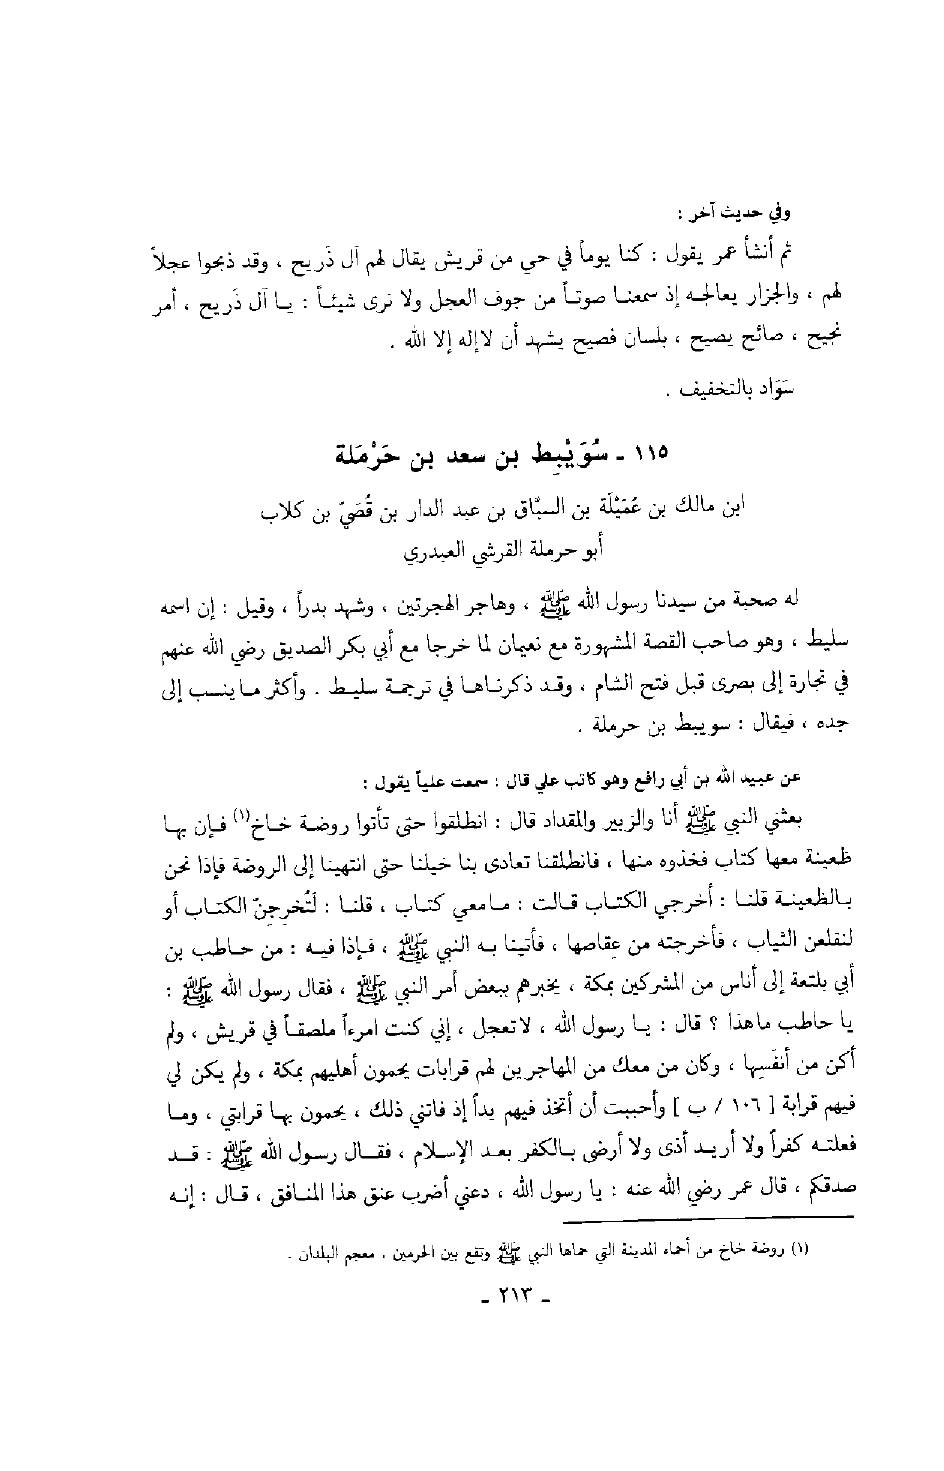 وفي حديث آخر :
ثم أنشأ عمر يقول : كنا يوماً في حي من قريش يقال لهم آل ذَريح ، وقد ذبحوا عجلاً
لهم ، والجزار يعالجه إذ سمعنا صوتاً من جوف العجل ولا نرى شيئاً : يا آل ذَريح ، أمر
نجيح ، صائح يصيح ، بلسان فصيح يشهد أن لاإله إلا الله .
سَوَاد بالتخفيف .
١١٥ - سُوَيْبِط بن سعد بن حَرْمَلة
ابن مالك بن عُمَيْلَة بن السبَّاق بن عبد الدار بن قُصَيّ بن كلاب
أبو حرملة القرشي العبدري
له صحبة من سيدنا رسول الله ﷺ ، وهاجر الهجرتين ، وشهد بدراً ، وقيل : إن اسمه
سليط ، وهو صاحب القصة المشهورة مع نعيمان لما خرجا مع أبي بكر الصديق رضي الله عنهم
في تجارة إلى بصرى قبل فتح الشام ، وقد ذكرناها في ترجمة سليط . وأكثر ما ينسب إلى
جده ، فيقال : سويبط بن حرملة .
عن عبيد الله بن أبي رافع وهو كاتب علي قال : سمعت علياً يقول :
بعثني النبي ﷺ أنا والزبير والمقداد قال : انطلقوا حتى تأتوا روضة خاخ(١) فإن بها
ظعينة معها كتاب فخذوه منها ، فانطلقنا تعادى بنا خيلنا حتى انتهينا إلى الروضة فإذا نحن
بالظعينة قلنا : أخرجي الكتاب قالت : مامعي كتاب ، قلنا : لَتُخرجِنّ الكتاب أو
لنقلعن الثياب ، فأخرجته من عِقاصها ، فأتينا به النبي ﷺ ، فإذا فيه : من حاطب بن
أبي بلتعة إلى أناس من المشركين بمكة ، يخبرهم ببعض أمر النبي ﷺ ، فقال رسول الله ﷺ :
يا حاطب ماهذا ؟ قال : يا رسول الله ، لاتعجل ، إني كنت امرءاً ملصقاً في قريش ، ولم
أكن من أنفَسِها ، وكان من معك من المهاجرين لهم قرابات يحمون أهليهم بمكة ، ولم يكن لي
فيهم قرابة [ ١٠٦ / ب ] وأحببت أن أتخذ فيهم يداً إذ فاتني ذلك ، يحمون بها قرابتي ، وما
فعلته كفراً ولا أريد أذى ولا أرضى بالكفر بعد الإسلام ، فقال رسول الله ﷺ : قد
صدقكم ، قال عمر رضي الله عنه : يا رسول الله ، دعني أضرب عنق هذا المنافق ، قال : إنه
(١) روضة خاخ من أحماء المدينة التي حماها النبي ﷺ وتقع بين الحرمين . معجم البلدان .
- ٢١٣ -